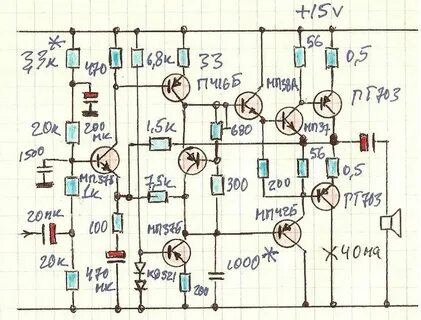 +15V
3,3к*
470
6,8к
33
56
0,5
П416Б
МП38А
МП37
ПТ703
20к
200 мк
1,5к
680
1500
МП37Б
1к
7,5к
300
200
56
0,5
ПТ703
20мк
100
МП37Б
МП42Б
20к
470 мк
КД521
200
1000*
*40ма